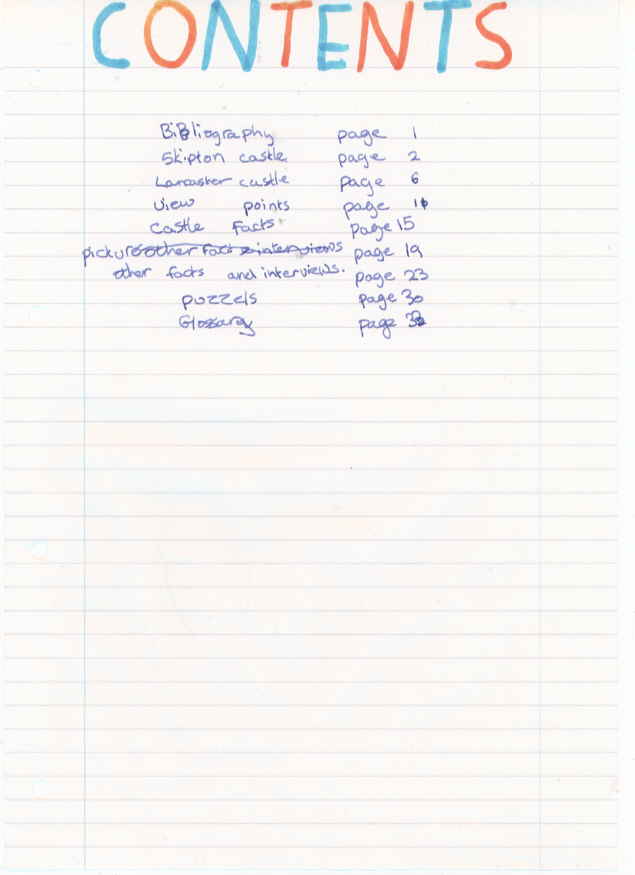 CONTENTS
Bibliography page 1
Skipton castle page 2
Lancaster castle page 6
view points page
castle facts page 15
pickures other fact & interviews page 19
other facts and interviews. page 23
puzzels page 30
Glossary page